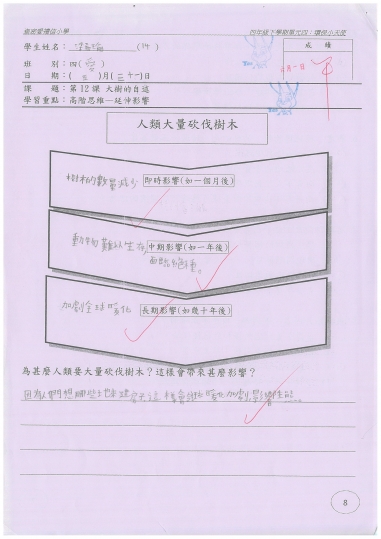 嘉密愛禮信小學 四年級下學期單元四：環保小天使
學生姓名： (14) 成績
班 別：四(愛) 四月一日
日 期：(三)月(二十一)日
課 題：第 12 課 大樹的自述
學習重點：高階思維—延伸影響
人類大量砍伐樹木
樹林的數量減少 即時影響(如一個月後)
動物難以生存 中期影響(如一年後)
面臨絕種。
加劇全球暖化 長期影響(如幾十年後)
為甚麼人類要大量砍伐樹木？這樣會帶來甚麼影響？
因為人們想
8